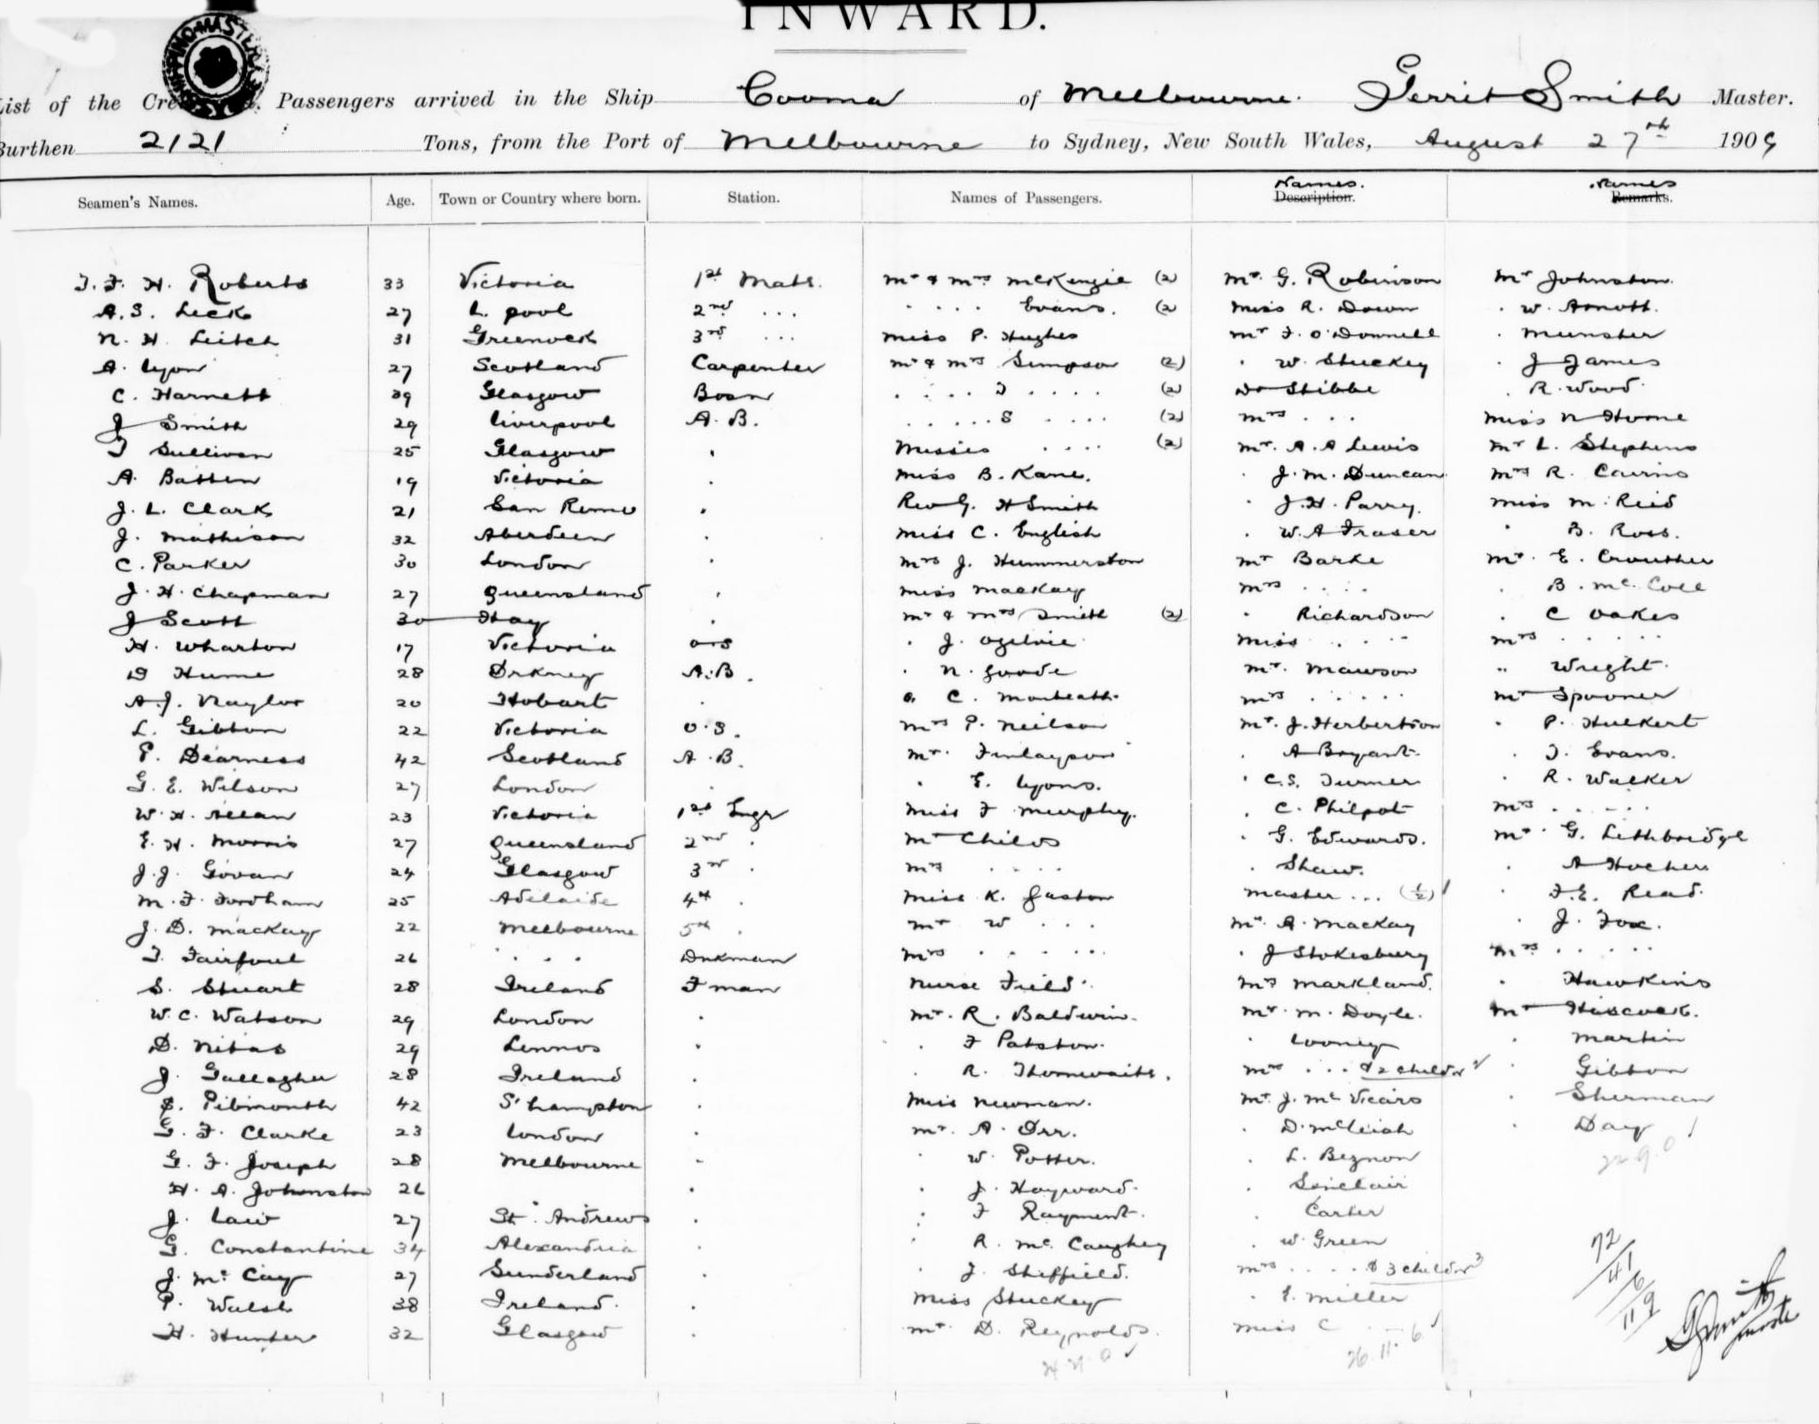 INWARD.
List of the Crew and Passengers arrived in the Ship Cooma of Melbourne. Gerrit Smith Master.
Burthen 2121 Tons, from the Port of Melbourne to Sydney, New South Wales, August 27th 1909
Seamen's Names. Age. Town or Country where born. Station. Names of Passengers. Names. Description. Names Remarks.
T. F. H. Roberts 33 Victoria 1st Mate. Mr & Mrs McKenzie (2) Mr. G. Robinson Mr Johnston.
A. S. Leck 27 L. pool 2nd ... . . . . Evans. (2) Miss R. Down . W. Arnott.
N. H. Leitch 31 Greenock 3rd ... Miss P. Hughes Mr F. O'Donnell . Munster
A. Lyon 27 Scotland Carpenter Mr & Mrs Simpson (2) . W. Stuckey . J James
C. Harnett 39 Glasgow Bosn . . . . T . . . . (2) Dr Stibbe . R. Wood
J Smith 29 Liverpool A. B. . . . . . S . . . . (2) Mrs . . . Miss N Horne
T Sullivan 25 Glasgow . Misses . . . . (2) Mr. A. A Lewis Mr L. Stephens
A. Batten 19 Victoria . Miss B. Kane. . J. M. Duncan Mrs R. Cairns
J. L. Clark 21 San Remo . Rev G. H Smith . J. H. Parry. Miss M. Reid
J. Mathison 32 Aberdeen . Miss C. English . W. A Fraser " B. Ross.
C. Parker 30 London . Mrs J. Hummerston Mr Barke Mr. E. Crowther
J. H. Chapman 27 Queensland . Miss Mackay Mrs . . . . . B. McColl
J Scott 30 Hay . Mr & Mrs Smith (2) . Richardson . C Oakes
H. Wharton 17 Victoria OS . J. Ogilvie Miss . . . . Mrs . . . . .
D Hume 28 Orkney A. B. . N. Goode Mr. Mawson " Wright.
A. J. Naylor 20 Hobart . . C. Monteath. Mrs . . . . . Mr Spooner
L. Gibbon 22 Victoria O. S. Mrs P. Neilson Mr. J. Herbertson . P. Hulkert
P. Dearness 42 Scotland A. B. Mr. Finlayson . A Bryant. . T. Evans.
G. E. Wilson 27 London . . E. Lyons. . C. S. Turner . R. Walker
W. H. Allan 23 Victoria 1st Engr Miss F Murphy. . C. Philpot Mrs . . . . .
E. H. Morris 27 Queensland 2nd . Mr Childs . G. Edwards. Mr. G. Lethbridge
J. J. Govan 24 Glasgow 3rd . Mrs . . . . . Shaw. . A Hocher
M. F. Fordham 25 Adelaide 4th . Miss K. Gaston Master ... (1/2) 1 . F. E. Read.
J. D. Mackay 22 Melbourne 5th . Mr W . . . Mr. A. Mackay . J. Fox.
T. Fairfoul 26 . . . Dnkman Mrs . . . . . . J Stokesbury Mrs . . . . .
S. Stuart 28 Ireland F man Nurse Field. Mrs Markland. . Hawkins
W. C. Watson 29 London . Mr. R. Baldwin. Mr. M. Doyle. Mr Hiscock.
D. Nitas 29 Lemnos . . F Patston. . Looney . Martin
J. Gallagher 28 Ireland . . R. Thornwaite. Mrs . . . & 2 childn 2 . Gibbon
S. Pibmouth 42 S'hampton . Miss Newman. Mr. J. McVicars . Sherman
G. F. Clarke 23 London . Mr. A. Orr. . D. McLeish . Day 1
G. F. Joseph 28 Melbourne . . W. Potter. . L. Beznon 22.9.0
H. A. Johnston 26 " . . J. Hayward. . Sinclair
J. Law 27 St. Andrews . . F Rayment. . Carter
G. Constantine 34 Alexandria . . R. McCaughey . W. Green 72
J. McCay 27 Sunderland . . J. Sheffield. Mrs . . . . & 3 childn 3 41
P. Walsh 38 Ireland . Miss Stuckey . E. Miller 6
H. Hunter 32 Glasgow . Mr D. Reynolds. Miss C . . . 119
26. 11. 6 GSmith Master